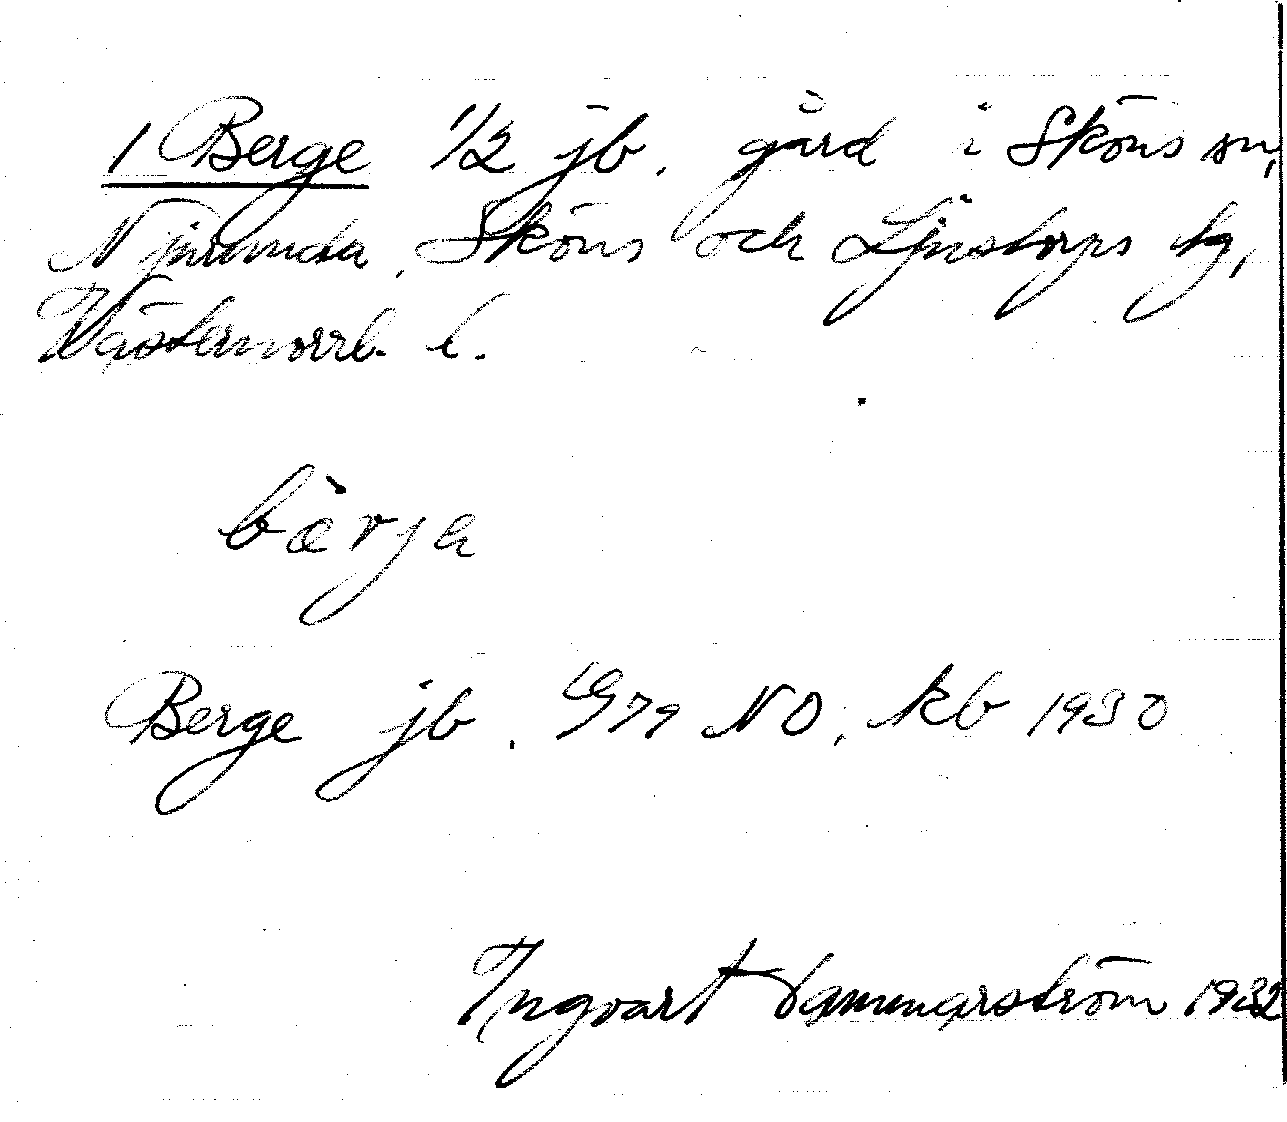 1 Berge 1/2 jb. gård i Sköns sn,
Njurunda, Sköns och Ljustorps tg,
Västernorrl. l.
bärja
Berge jb. G79 NO, kb 1930
Ingvart Hammarström 1932